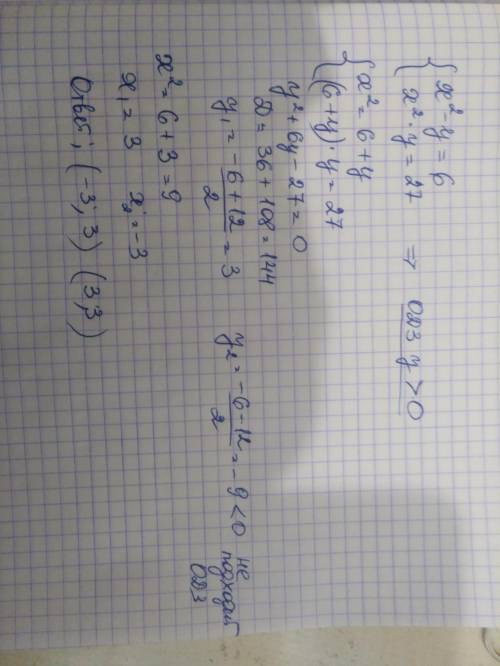 { x² - y = 6
{ x² · y = 27 ⇒ ОДЗ y > 0
{ x² = 6 + y
{ (6 + y) · y = 27
y² + 6y - 27 = 0
D = 36 + 108 = 144
y₁ = (-6 + 12)/2 = 3 y₂ = (-6 - 12)/2 = -9 < 0 не подходит ОДЗ
x² = 6 + 3 = 9
x₁ = 3 x₂ = -3
Ответ: (-3; 3) (3; 3)